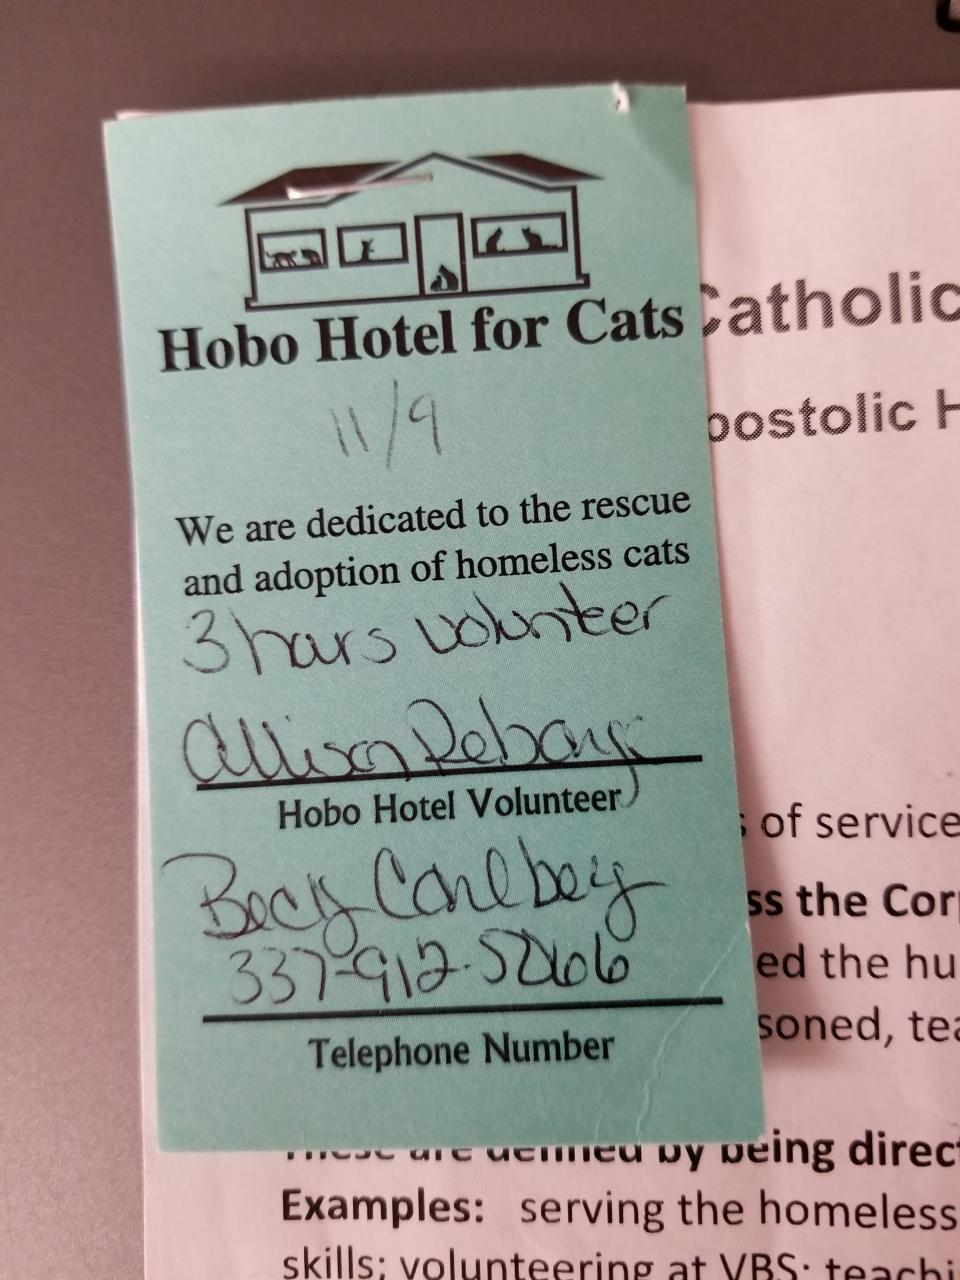 Hobo Hotel for Cats
11/9
We are dedicated to the rescue
and adoption of homeless cats
3 hours volunteer
Allison
Hobo Hotel Volunteer
Becky
337-912-5266
Telephone Number
Catholic
postolic H
of service
ss the Cor
ed the hu
soned, tea
These are defined by being direc
Examples: serving the homeless
skills; volunteering at VBS; teachi